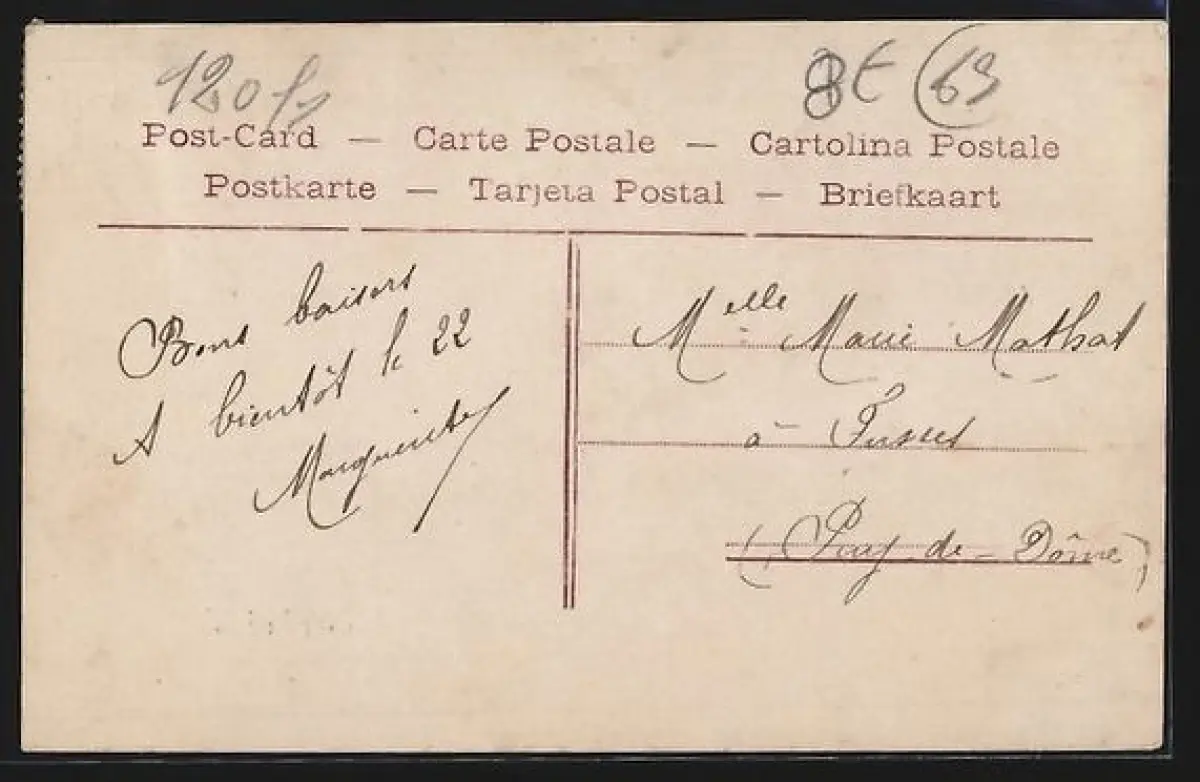 120 f
8€ (63
Post-Card — Carte Postale — Cartolina Postale
Postkarte — Tarjeta Postal — Briefkaart
Bons baisers
A bientôt le 22
Marguerite
Melle Marie Mathat
à
(Puy-de-Dôme)